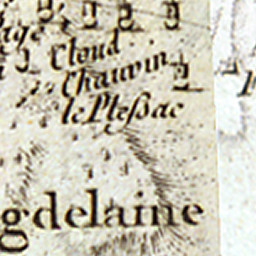 Cloud
Chauvin
le Pleßac
gdelaine